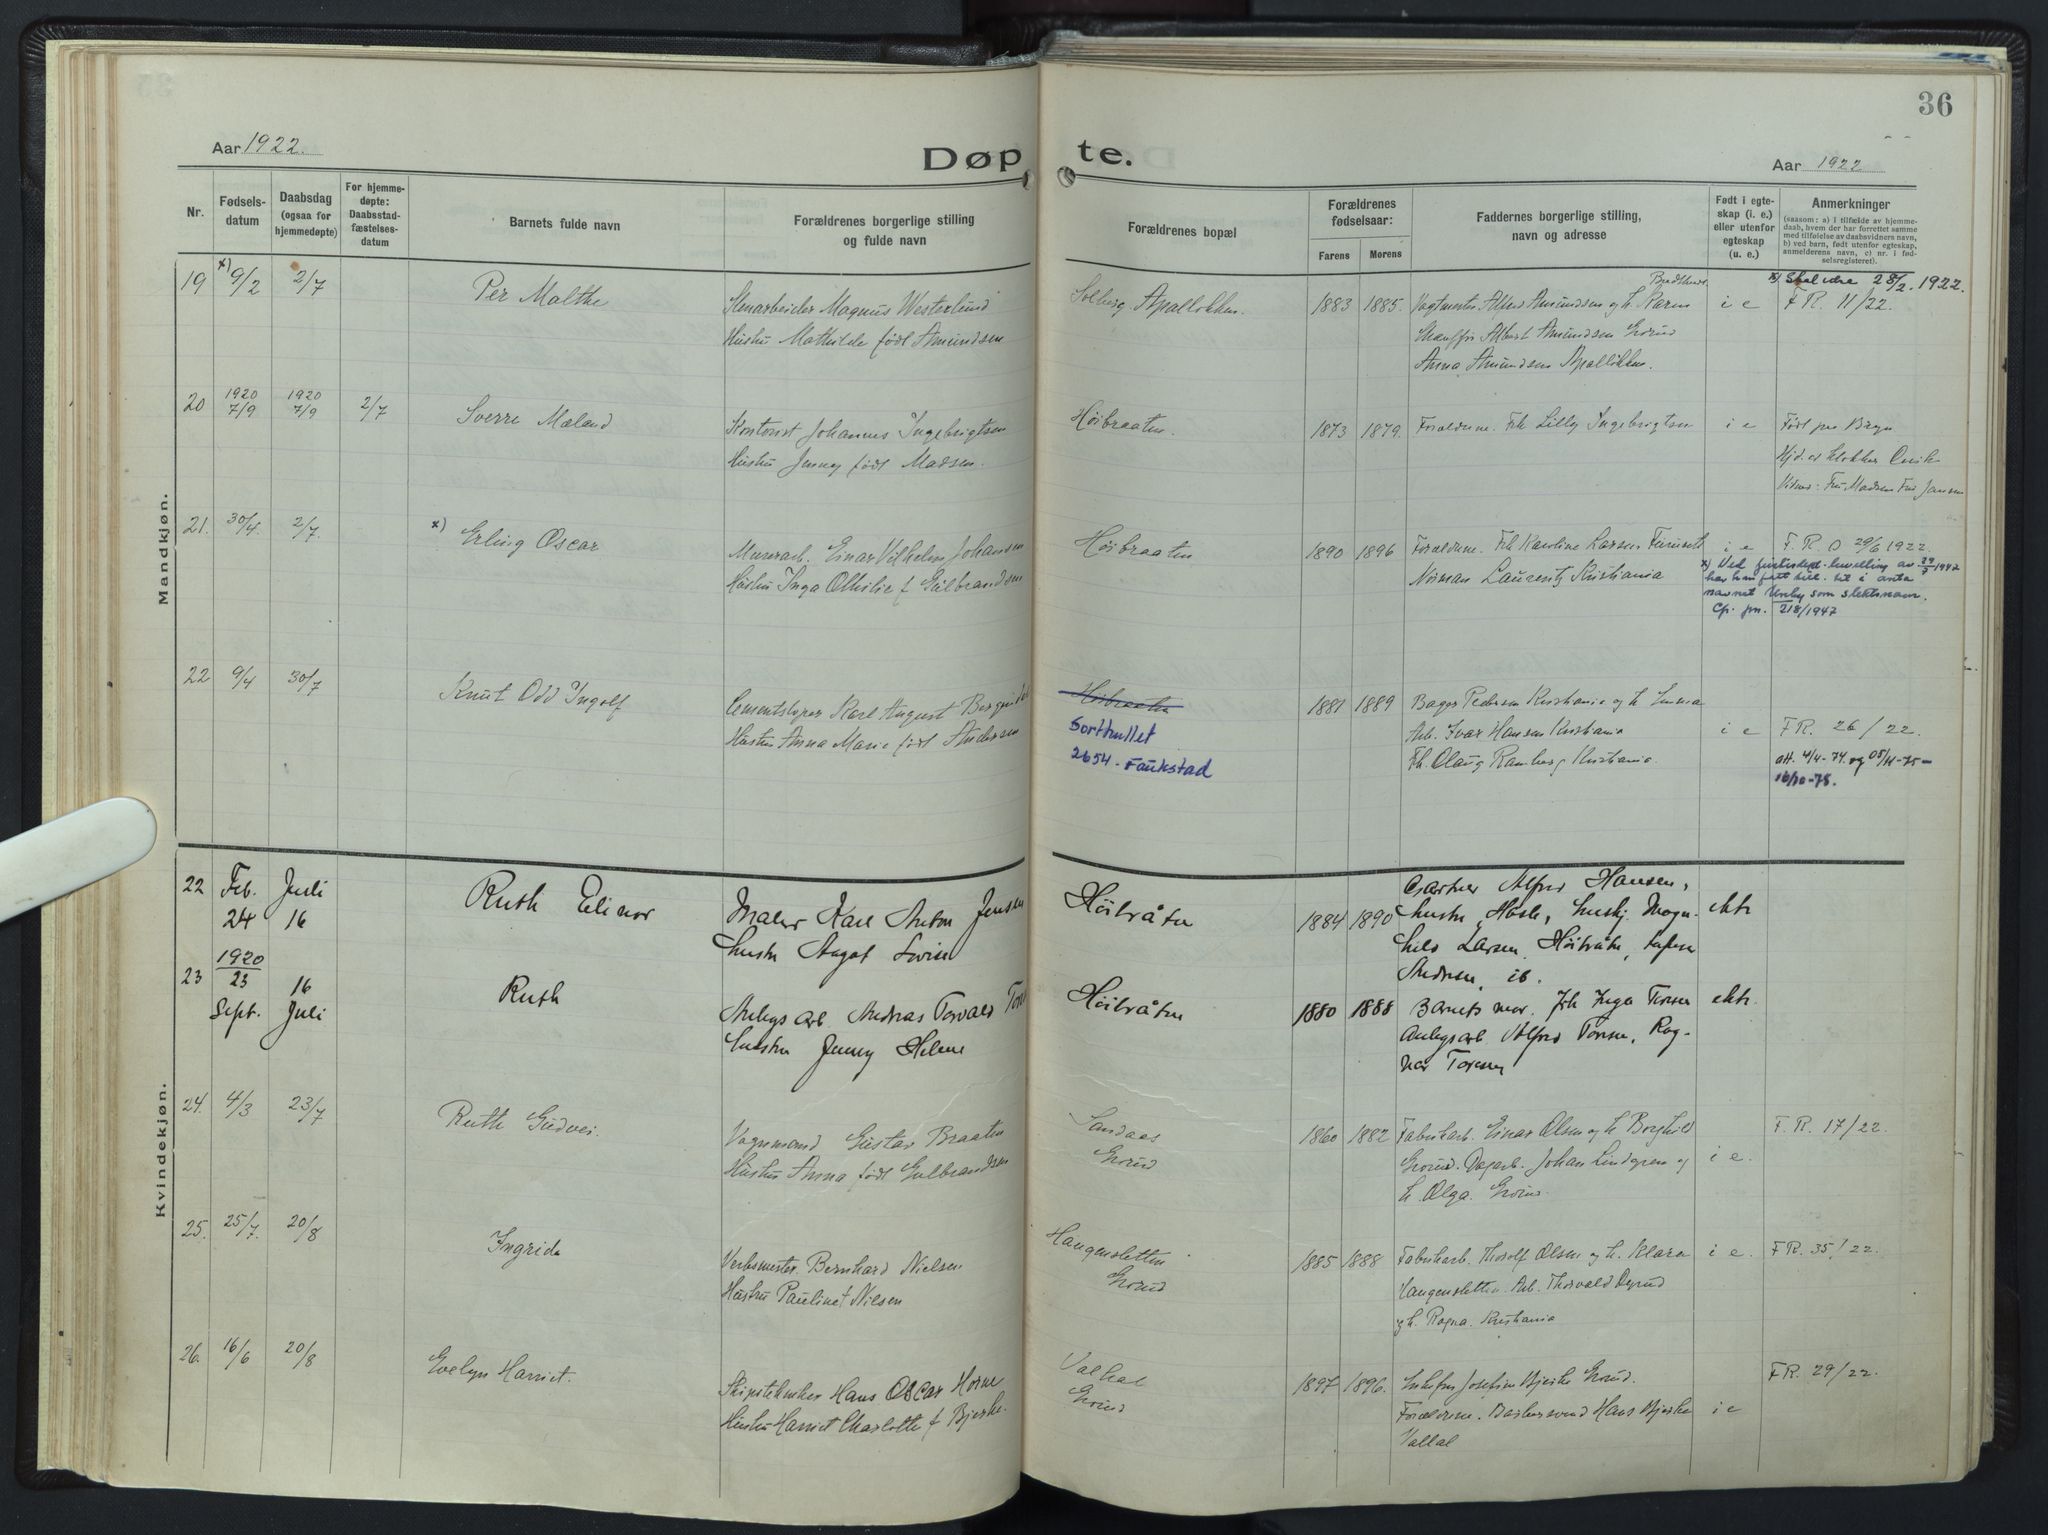 36
Aar 1922.
Døpte.
Aar 1922
Nr.
Fødsels-
datum
Daabsdag
(ogsaa for
hjemmedøpte)
For hjemme-
døpte:
Daabsstad-
fæstelses-
datum
Barnets fulde navn
Forældrenes borgerlige stilling
og fulde navn
Forældrenes bopæl
Forældrenes
fødselsaar:
Farens Morens
Faddernes borgerlige stilling,
navn og adresse
Født i egte-
skap (i. e.)
eller utenfor
egteskap
(u. e.)
Anmerkninger
(saasom: a) i tilfælde av hjemme-
daab, hvem der har forrettet samme
med tilføielse av daabsvidners navn,
b) ved barn, født utenfor egteskap,
anmelderens navn, c) nr. i fød-
selsregisteret).
Mandkjøn.
19 x) 9/2 2/7 Per Malthe
Stenarbeider Magnus Westerlund
Hustru Mathilde født Amundsen
Solberg. Apalløkken. 1883 1885.
Vagtmester Alfred Amundsen og h. Karen
Chauffør Albert Amundsen Grorud
Anna Amundsen Apalløkken.
i e
x) Skal være 28/2. 1922.
F R. 11/22.
20 1920 7/9 1920 7/9 2/7 Sverre Mæland
Kontorist Johannes Ingebrigtsen
Hustru Jenny født Madsen.
Høibraaten. 1873 1879.
Forældrene. Frk Lilly Ingebrigtsen
i e
Født paa Bryn
Hjd. av klokker
Vidner: Fru Madsen Fru Jansen
21. 30/4. 2/7. x) Erling Oscar
Murerarb. Einar Vilhelm Johansen
Hustru Inga Othilie f Gulbrandsen
Høibraaten 1890 1896
Forældrene. Frk Karoline Larsen Furuseth
Norman Laurentz Kristiania
i e
F. R. O 29/6 1922.
x) Ved justisdept. bevilling av 29/7 1947
har han fått till. til å anta
navnet Unby som slektsnavn.
Cp. jnr. 218/1947
22 9/4 30/7 Knut Odd Ingolf
Cementstøper Karl August Bergendal
Hustru Anna Marie født Andersen
Høibraaten
Sorthullet
2654 - Faukstad
1881 1889
Bager Pedersen Kristiania og h Emma
Arb. Ivar Hansen Kristiania
Frk. Olaug Ramberg Kristiania.
i e
F R. 26/22.
att. 4/4-74. og 05/11-75-
16/10-78.
Kvindekjøn.
22 Feb. 24 Juli 16 Ruth Elinor
Maler Karl Anton Jensen
hustru Aagot Lovise
Høibråten 1884 1890
Gartner Alfred Hansen,
hustru, Hasle, huskj. Magn-
hild Larsen Høibråten,
Andresen, ib.
ekte
23 1920 23 Sept. 16 Juli Ruth
Anlegsarb. Andreas Torvald
hustru Jenny Helene
Høibråten 1880 1888
Barnets mor. Frk Inga Toresen
Anlegsarb. Alfred Toresen, Rag-
nar Toresen
ekte.
24. 4/3 23/7 Ruth Gudvei.
Vognmand Gustav Braaten
Hustru Anna født Gulbrandsen
Sandaas
Grorud
1860 1882
Fabrikarb. Einar Olsen og h Borghild
Grorud. Dagarb. Johan Lindgren og
h. Olga. Grorud.
i e.
F. R. 17/22.
25. 25/7. 20/8 Ingrid
Verksmester Bernhard Nielsen
Hustru Pauline f Nilsen
Haugensletten
Grorud
1885 1888
Fabrikarb. Thorolf Olsen og h. Klara
Haugensletten. Arb. Thorvald Dyrud
og h. Ragna. Kristiania
i e.
F R. 35/22.
26. 16/6 20/8 Evelyn Harriet.
Skipstekniker Hans Oscar Horne
Hustru Harriet Charlotte f Bjerke.
Valhal
Grorud
1897 1896.
Enkefru Josefine Bjerke Grorud.
Forældrene. Hans Bjerke
Vallal
i e
F R. 29/22.